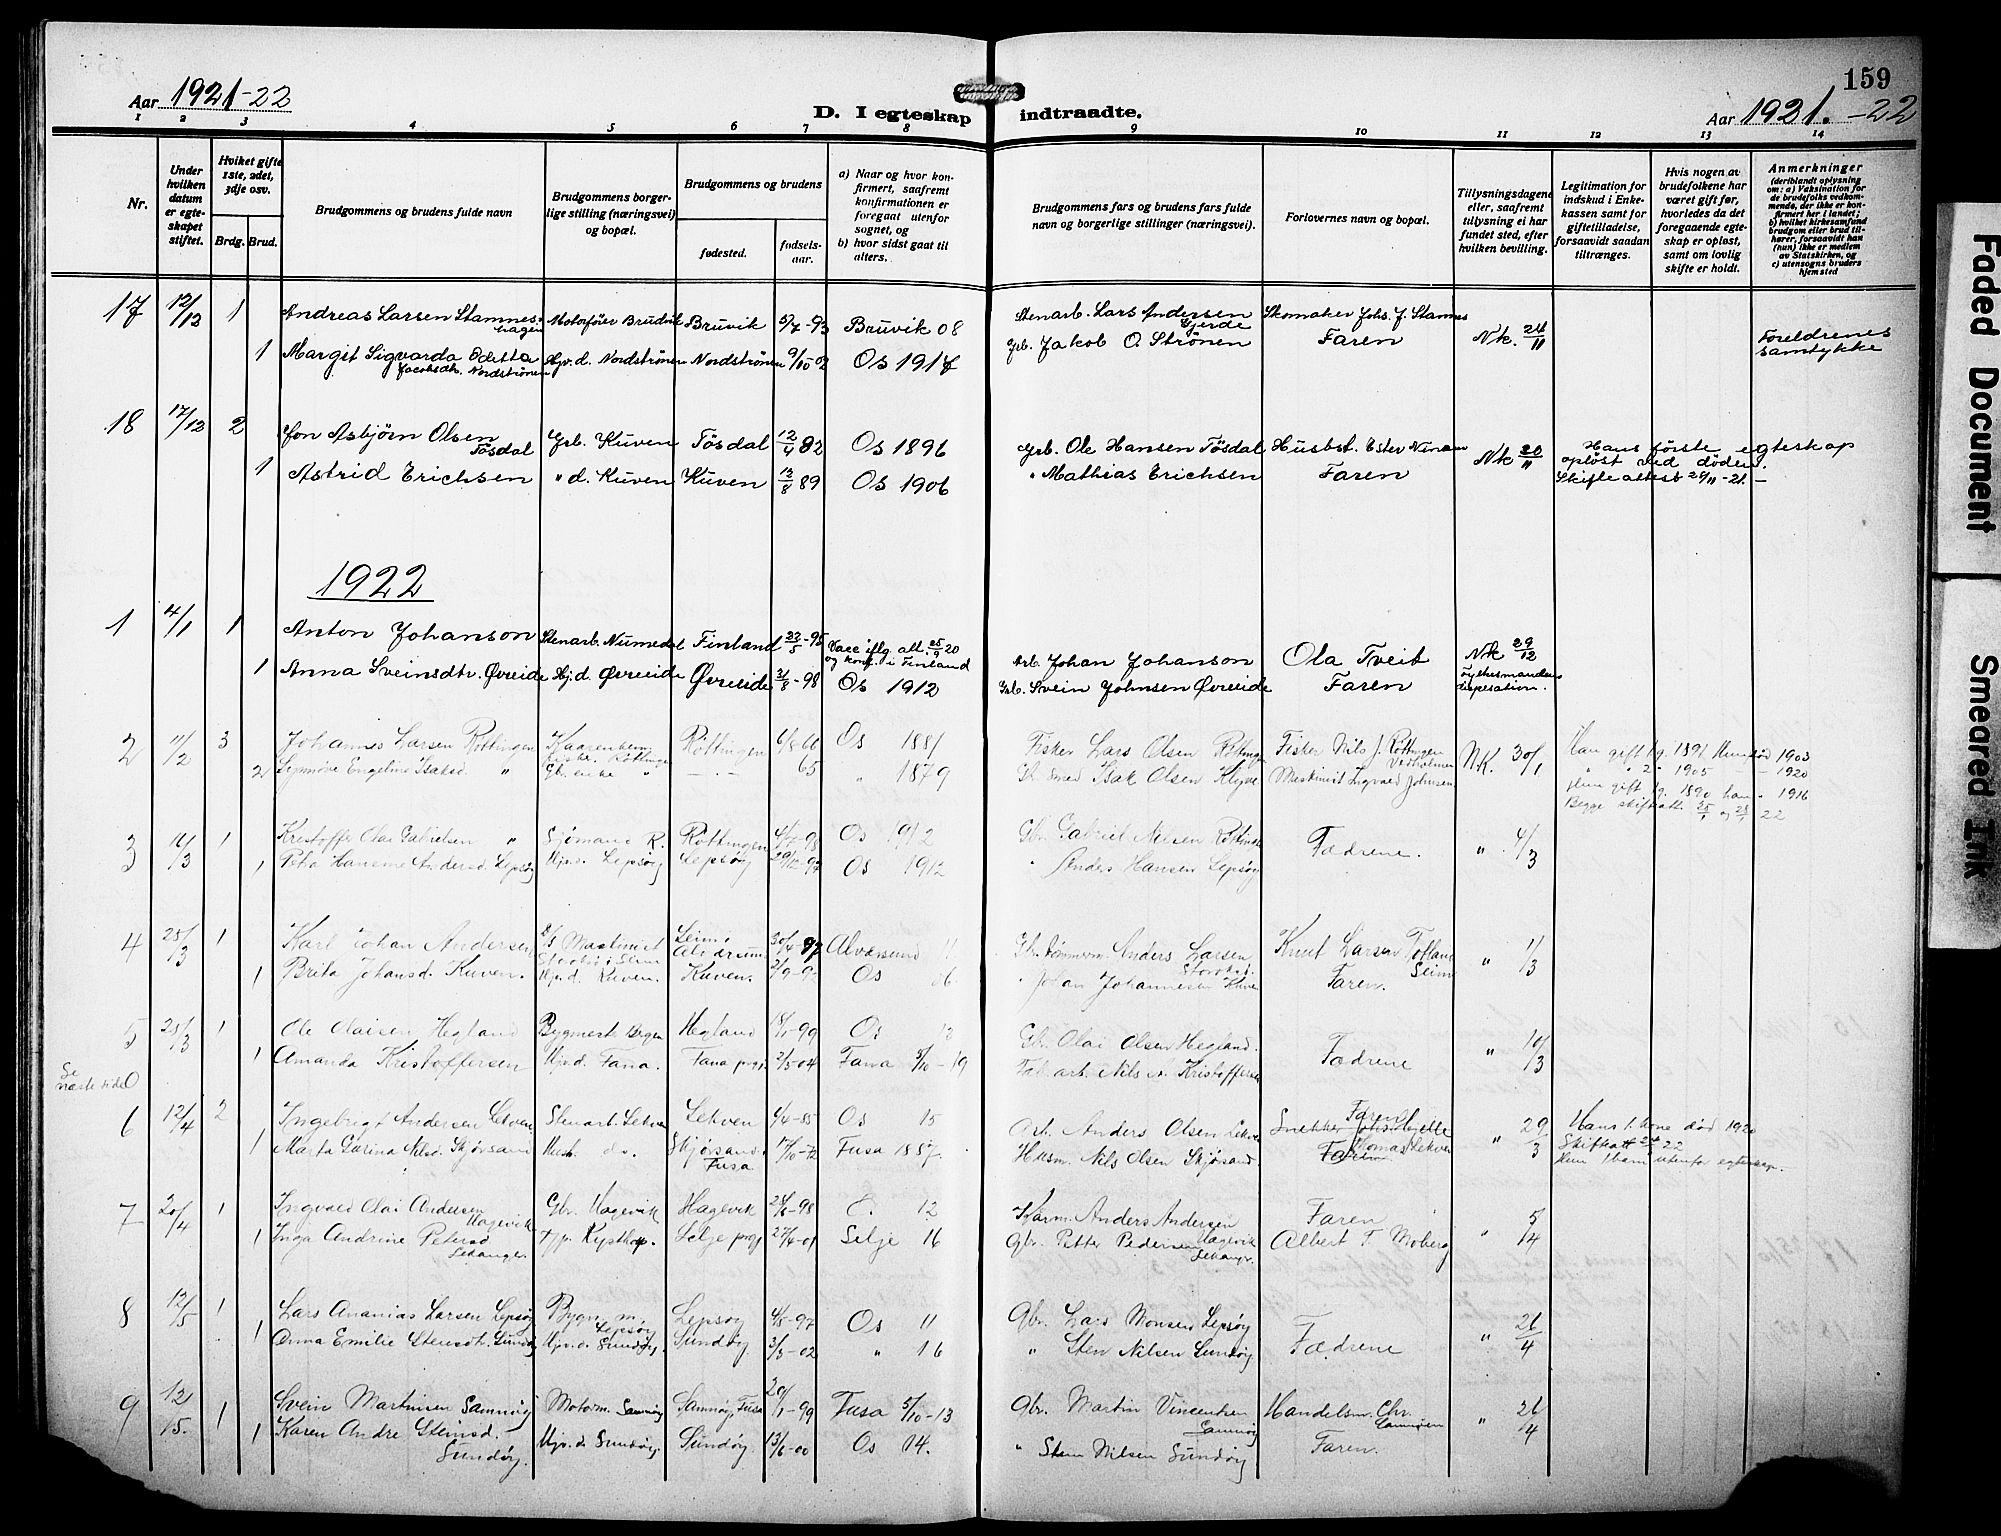 159
Aar 1921-22
D. I egteskap indtraadte.
Aar 1921.-22
1 2 3 4 5 6 7 8 9 10 11 12 13 14
Nr.
Under hvilken datum er egteskapet stiftet.
Hvilket gifte 1ste, 2det, 3dje osv.
Brdg. Brud.
Brudgommens og brudens fulde navn
Brudgommens borgerlige stilling (næringsvei) og bopæl.
Brudgommens og brudens
fødested.
fødselsaar.
a) Naar og hvor konfirmert, saafremt konfirmationen er foregaat utenfor sognet, og
b) hvor sidst gaat til alters.
Brudgommens fars og brudens fars fulde navn og borgerlige stillinger (næringsvei).
Forlovernes navn og bopæl.
Tillysningsdagene eller, saafremt tillysning ei har fundet sted, efter hvilken bevilling.
Legitimation for indskud i Enkekassen samt for giftetilladelse, forsaavidt saadan tiltrænges.
Hvis nogen av brudefolkene har været gift før, hvorledes da det foregaaende egteskap er opløst, samt om lovlig skifte er holdt.
Anmerkninger
(deriblandt oplysning om: a) Vaksination for de brudefolks vedkommende, der ikke er konfirmert her i landet; b) hvilket kirkesamfund brudgom eller brud tilhører, forsaavidt han (hun) ikke er medlem av Statskirken, og c) utensogns bruders hjemsted
17 12/12 1 Andreas Larsen Stamneshagen Motorfører Bruvik Bruvik 5/7-93 Bruvik 08 Stenarb. Lars Andersen Gjerde Skomaker Johs. J. Stamnes Nk. 24/11 Foreldrenes samtykke
1 Margit Sigvarda Oditta Jacobsdtr. Nordströnen Hjv. d. Nordströnen Nordströnen 9/10-02 Os 1917 Grb. Jakob O. Strönen Faren
18 17/12 2 Jon Asbjørn Olsen Tösdal Grb. Kuven Tösdal 12/4 82 Os 1896 Grb. Ole Hansen Tösdal Husbst. Ester Nman Nk 20/11 Hans første egteskap opløst ved døden. Skifteattest 26/11-21.
1 Astrid Erichsen " d. Kuven Kuven 13/8 89 Os 1906 " Mathias Erichsen Faren
1922
1 4/1 1 Anton Johanson Stenarb. Numedal Finland 22/5-95 Vacc iflg. att. 25/9 20 og konf. i Finland Arb. Johan Johanson Ola Tveit Nk 29/12 Fylkesmandens dispesation.
1 Anna Sveinsdtr. Øvreide Hjd. Øvreide Øvreide 31/8-98 Os 1912 Grb. Svein Johnsen Øvreide Faren
2 11/2 3 Johannes Larsen Röttingen Fisker Röttingen Röttingen 6/8 66 Os 1881 Fisker Lars Olsen Röttingen Fisker Nils J. Röttingen N.K. 30/1 Han gift 1 g. 1891 Hun død 1903
" " 2 " 1905 - - 1920
2 Synnöve Engeline Isaksd. " Gb. enke " - . - 65 " 1879 Isak Olsen Klyve Maskinist Ingvald Johnsen Hun gift 1 g. 1890 han " 1916
Begge skifteatt. 22
3 14/3 1 Kristoffer Olai Gabrielsen " Sjömand R. Röttingen Os 1912 Gbr Gabriel Nilsen Röttingen Fædrene. " 4/3
1 Hansine Andersd. Lepsøy Hjv. d. Lepsöy Lepsöy 29/12-97 Os 1912 " Anders Hansen Lepsöy
4 25/3 1 Karl Johan Andersen Maskinist Seim, Alvdrsund 30/4-97 Alversund 11 Anders Larsen Knut Larsen Tofland Seim " 1/3
1 Brita Johansd. Kuven. Hjv. d. Kuven. Kuven. 2/9-92 Os 06 " Johan Johannesen Kuven Faren.
5 25/3 1 Ole Olaisen Hegland Bygmest. Bergen Hegland 18/1-99 Os 13 Gbr. Olai Olsen Hegland. Fædrene " 10/3
1 Amanda Kristoffersen Hjv. d. Fana. Fana prgj. 2/5-04 Fana 5/10-19 Fab. arb. Nils Kristoffersen
Se næste side
6 12/4 2 Ingebrigt Andersen Lekven Stenarb. Lekven Lekven 4/4-85 Os 15 Arb. Anders Olsen Lekven Faren " 29/3 Hans 1. kone død 1920
1 Marta Nilsd. Skjørsand Hush. do. Skjørsand. Fusa 17/10-72 Fusa 1887. Husm. Nils Olsen Skjørsand. Thomas Lekven Skifteatt 24/3 22 Hun 1 barn utenfor egteskap.
7 20/4 1 Ingvald Olai Andersen Hagevik Gbr. Hagevik Hagevik 28/8-98 12 Anders Andersen Hagevik Faren " 5/4
1 Inga Andrine Petersd Lekanger Selje prgj 27/4-01 Selje 16 Gbr. Petter Pedersen Lekanger Albert T. Moberg
8 12/5 1 Lars Ananias Larsen Lepsöy Bygn. m. Lepsöy Lepsöy 4/8-97 Os 11 Gbr. Lars Monsen Lepsöy Fædrene " 26/4
1 Anna Emilie Stensdt. Sundöy Hjv. d. Sundöy. Sundöy. 3/5-02 " 16 " Sten Nilsen Sundöy
9 12/15. 1 Svein Martinsen Samnöy Motorm. Samnöy Samnöy, Fusa 20/1-99 Fusa 5/10-13 Gbr. Martin Vincentsen Samnöy Handelsm. Chr. Samnöen " 26/4
1 Karen Andre Steinsd. Sundöy. Hjv. d. Sundöy. Sundöy. 13/6-00 Os 14. " Sten Nilsen Sundöy Faren.
Faded Document
Smeared Ink